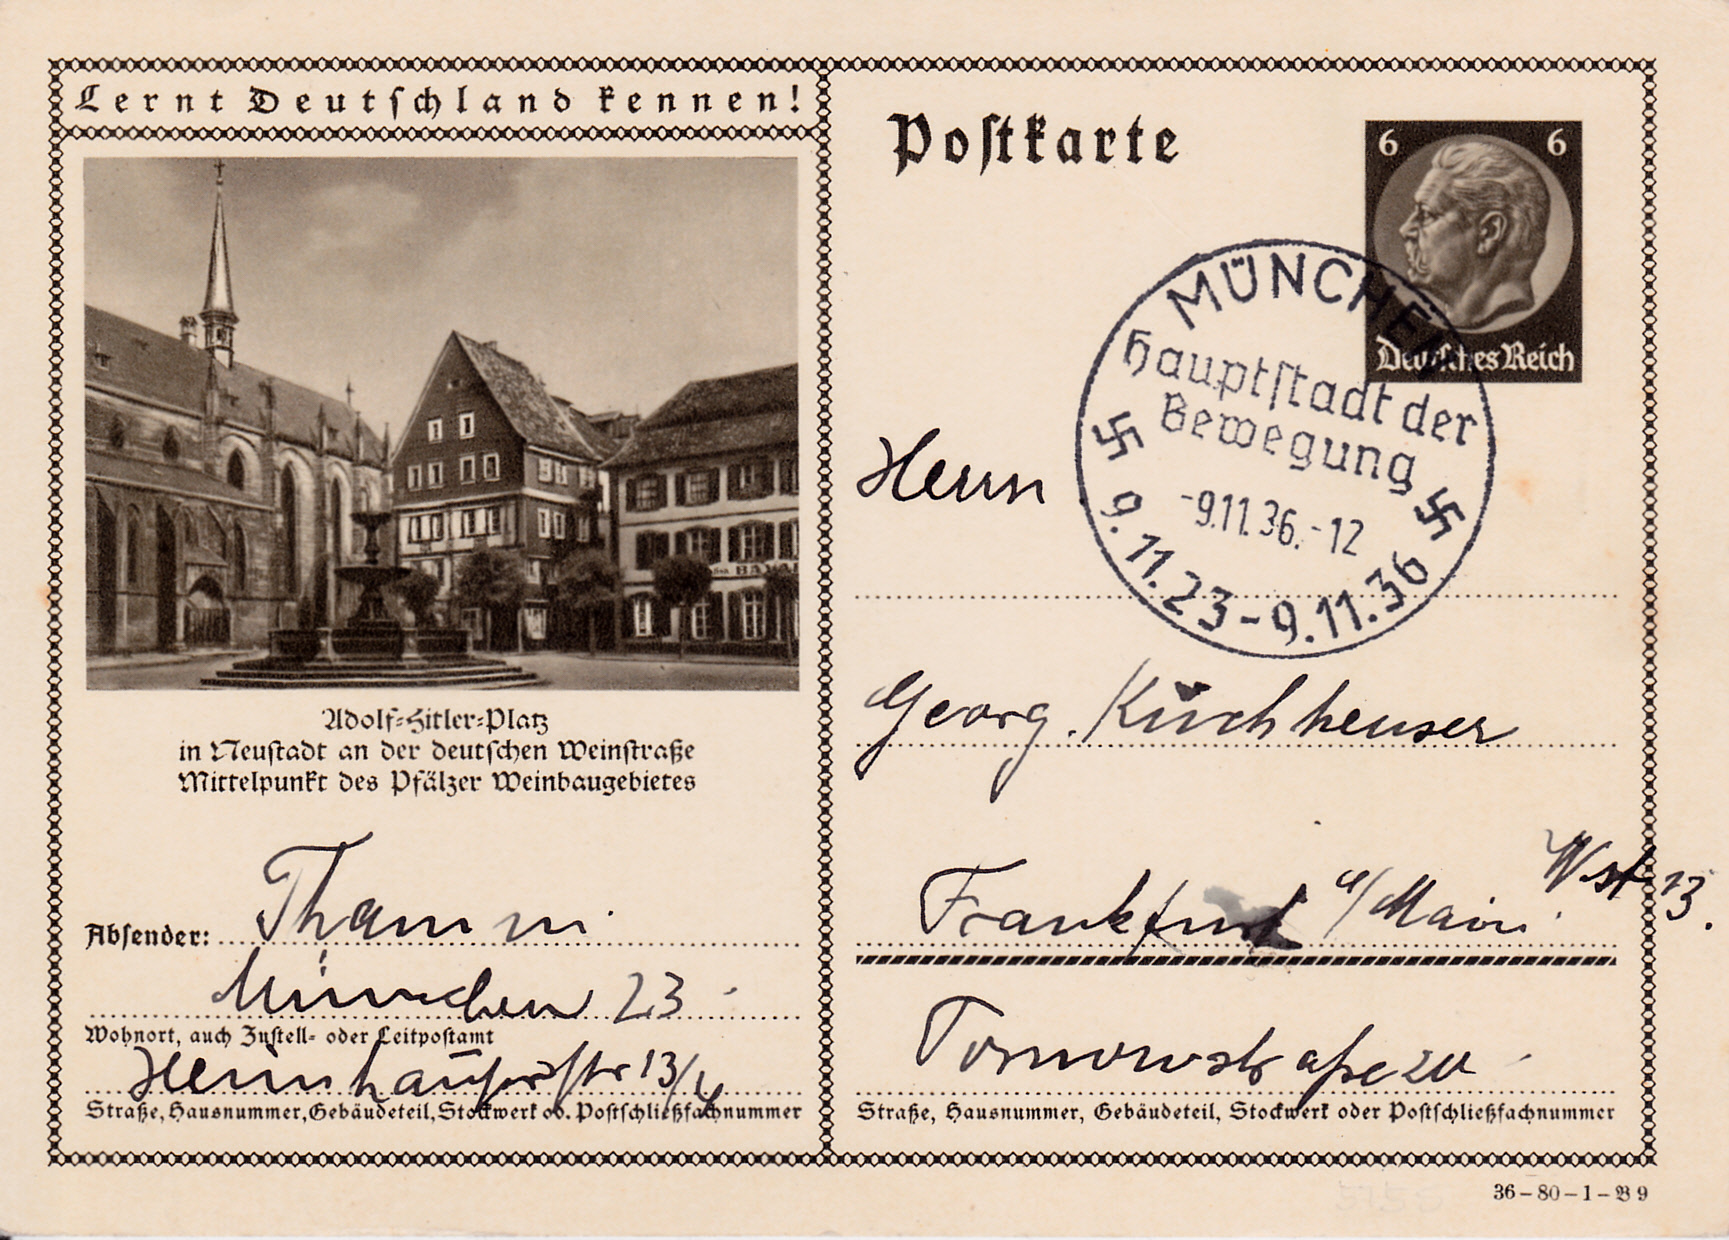 Lernt Deutschland kennen!
BAVA
Adolf-Hitler-Platz
in Neustadt an der deutschen Weinstraße
Mittelpunkt des Pfälzer Weinbaugebietes
Absender: Thamm
München 23
Wohnort, auch Zustell- oder Leitpostamt
13/
Straße, Hausnummer, Gebäudeteil, Stockwerk od. Postschließfachnummer
Postkarte
6 6
Deutsches Reich
MÜNCHEN
Hauptstadt der
Bewegung
-9.11.36.-12
9.11.23-9.11.36
Herrn
Georg
Frankfurt a/Main. W 13.
Tornowstraße 20
Straße, Hausnummer, Gebäudeteil, Stockwerk oder Postschließfachnummer
36-80-1-B 9